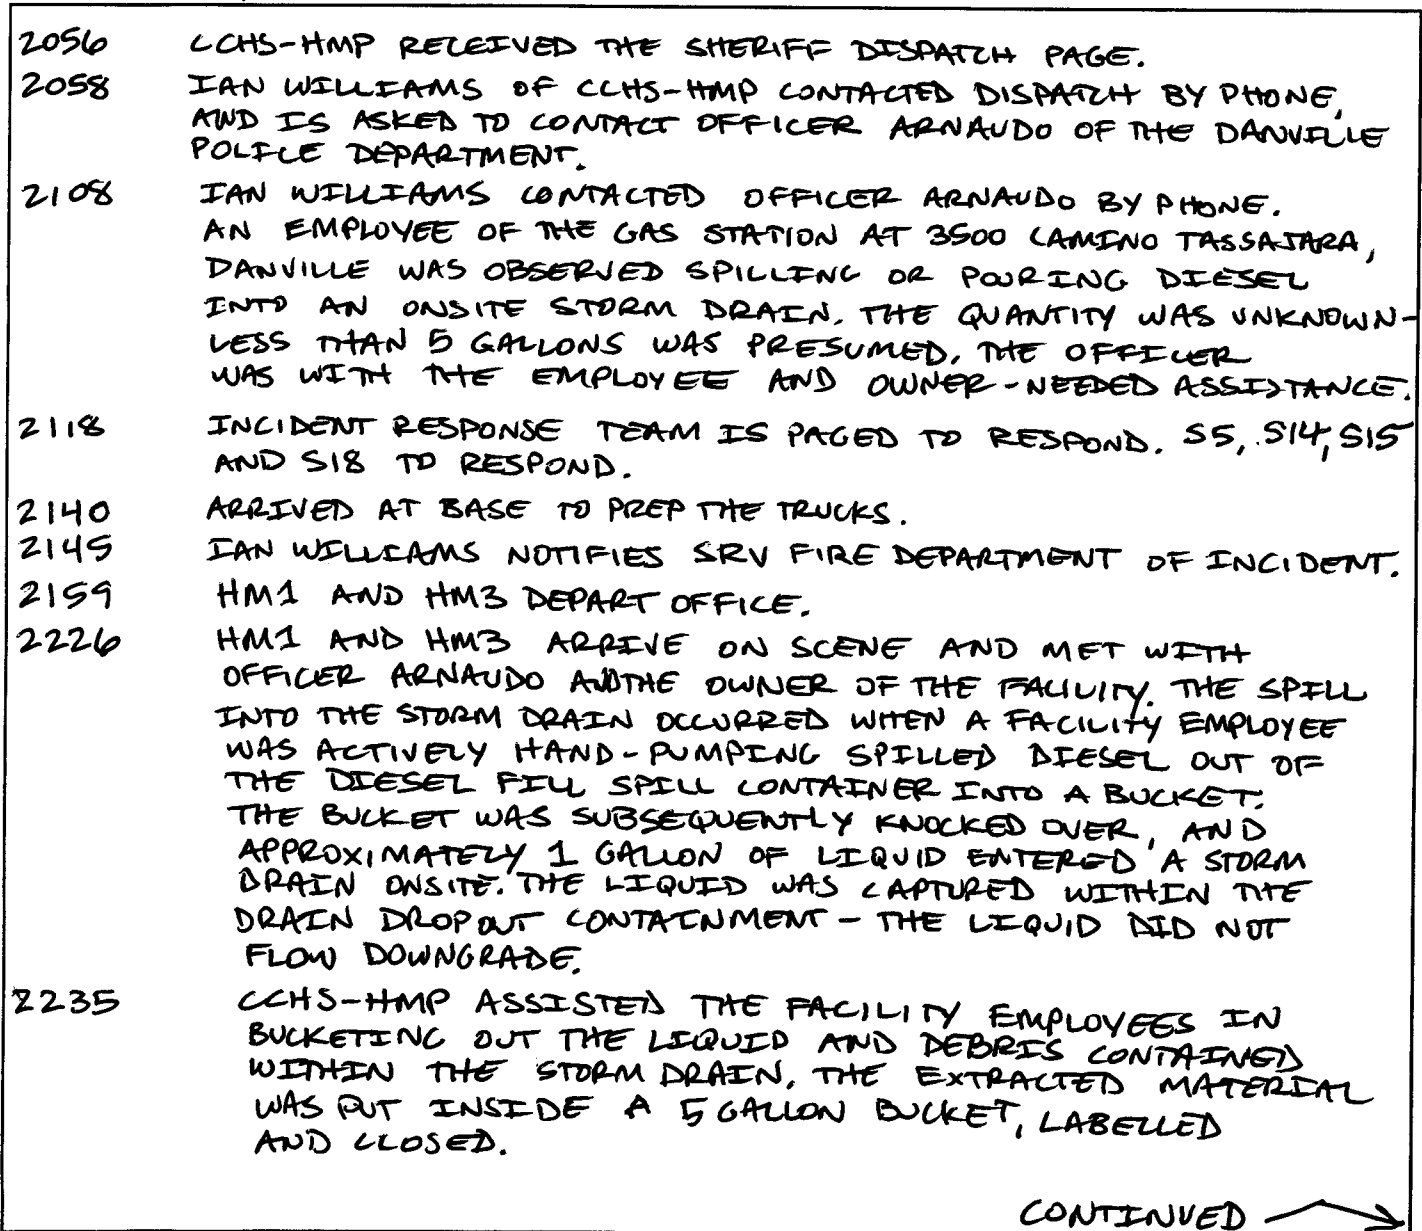 2056 CCHS-HMP RECEIVED THE SHERIFF DISPATCH PAGE.
2058 IAN WILLIAMS OF CCHS-HMP CONTACTED DISPATCH BY PHONE,
AND IS ASKED TO CONTACT OFFICER ARNAUDO OF THE DANVILLE
POLICE DEPARTMENT.
2108 IAN WILLIAMS CONTACTED OFFICER ARNAUDO BY PHONE.
AN EMPLOYEE OF THE GAS STATION AT 3500 CAMINO TASSAJARA,
DANVILLE WAS OBSERVED SPILLING OR POURING DIESEL
INTO AN ONSITE STORM DRAIN. THE QUANTITY WAS UNKNOWN-
LESS THAN 5 GALLONS WAS PRESUMED. THE OFFICER
WAS WITH THE EMPLOYEE AND OWNER-NEEDED ASSISTANCE.
2118 INCIDENT RESPONSE TEAM IS PAGED TO RESPOND. S5, S14, S15
AND S18 TO RESPOND.
2140 ARRIVED AT BASE TO PREP THE TRUCKS.
2145 IAN WILLIAMS NOTIFIES SRV FIRE DEPARTMENT OF INCIDENT.
2159 HM1 AND HM3 DEPART OFFICE.
2226 HM1 AND HM3 ARRIVE ON SCENE AND MET WITH
OFFICER ARNAUDO AND THE OWNER OF THE FACILITY. THE SPILL
INTO THE STORM DRAIN OCCURRED WHEN A FACILITY EMPLOYEE
WAS ACTIVELY HAND-PUMPING SPILLED DIESEL OUT OF
THE DIESEL FILL SPILL CONTAINER INTO A BUCKET.
THE BUCKET WAS SUBSEQUENTLY KNOCKED OVER, AND
APPROXIMATELY 1 GALLON OF LIQUID ENTERED A STORM
DRAIN ONSITE. THE LIQUID WAS CAPTURED WITHIN THE
DRAIN DROPOUT CONTAINMENT - THE LIQUID DID NOT
FLOW DOWNGRADE.
2235 CCHS-HMP ASSISTED THE FACILITY EMPLOYEES IN
BUCKETING OUT THE LIQUID AND DEBRIS CONTAINED
WITHIN THE STORM DRAIN. THE EXTRACTED MATERIAL
WAS PUT INSIDE A 5 GALLON BUCKET, LABELLED
AND CLOSED.
CONTINUED